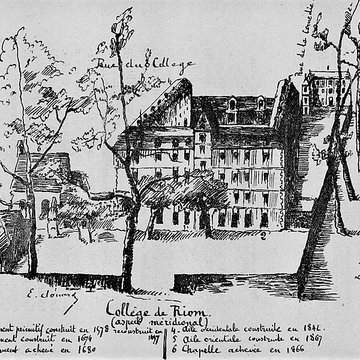 Rue du Collège
Rue de la
2
Collège de Riom.
(aspect méridional)
primitif construit en 1578
construit en 1674
achevé en 1680
reconstruit en
4 - Aile occidentale construite en
5 Aile orientale construite en 1867
6 Chapelle achevée en 1866